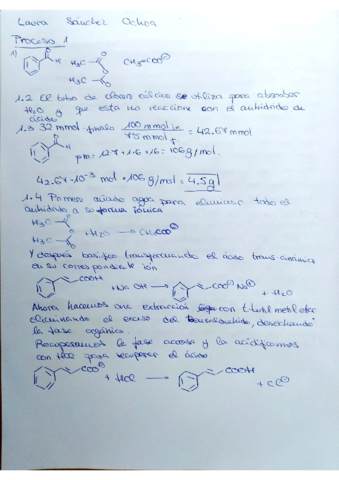 Laura Sánchez Ochoa
Proceso 1
1)
O
H
H₃C
O
O
H₃C
O
CH₃COO⊖
1.2 El tubo de cloruro cálcico se utiliza para absorber
H₂O y que esta no reaccione con el anhidrido de
ácido
1.3 32 mmol finales 100 mmol in / 75 mmol f. = 42,67 mmol
O
H
pm = 12·7 + 1·6 + 16 = 106 g/mol.
42,67·10⁻³ mol · 106 g/mol = 4,5 g
1.4 Primero añado agua para eliminar todo el
anhidrido a su forma iónica
H₃C
O
O
H₃C
O
+ H₂O → CH₃COO⊖
Y después basifico transformando el ácido trans-cinámico
en su correspondiente ion
COOH + NaOH → COO⊖ Na⊕ + H₂O
Ahora hacemos una extracción con t-butil metil eter
eliminando el exceso del benzaldehido, desechando
la fase orgánica.
Recuperamos la fase acuosa y la acidificamos
con HCl para recuperar el ácido
COO⊖ + HCl → COOH + Cl⊖